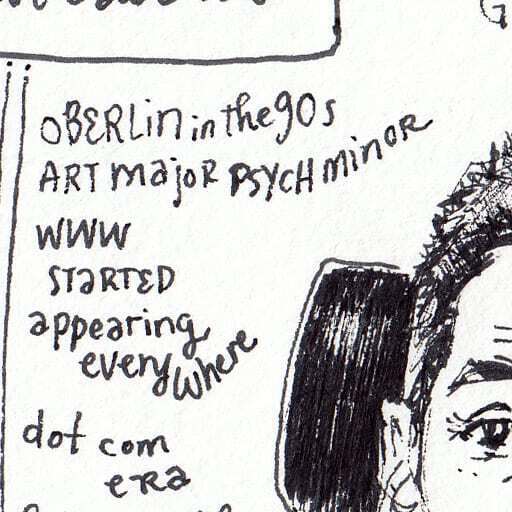 OBERLin in the 90s
ART majoR PSYCH minOR
WWW
STaRTED
appearing
everywhere
dot com
eRa